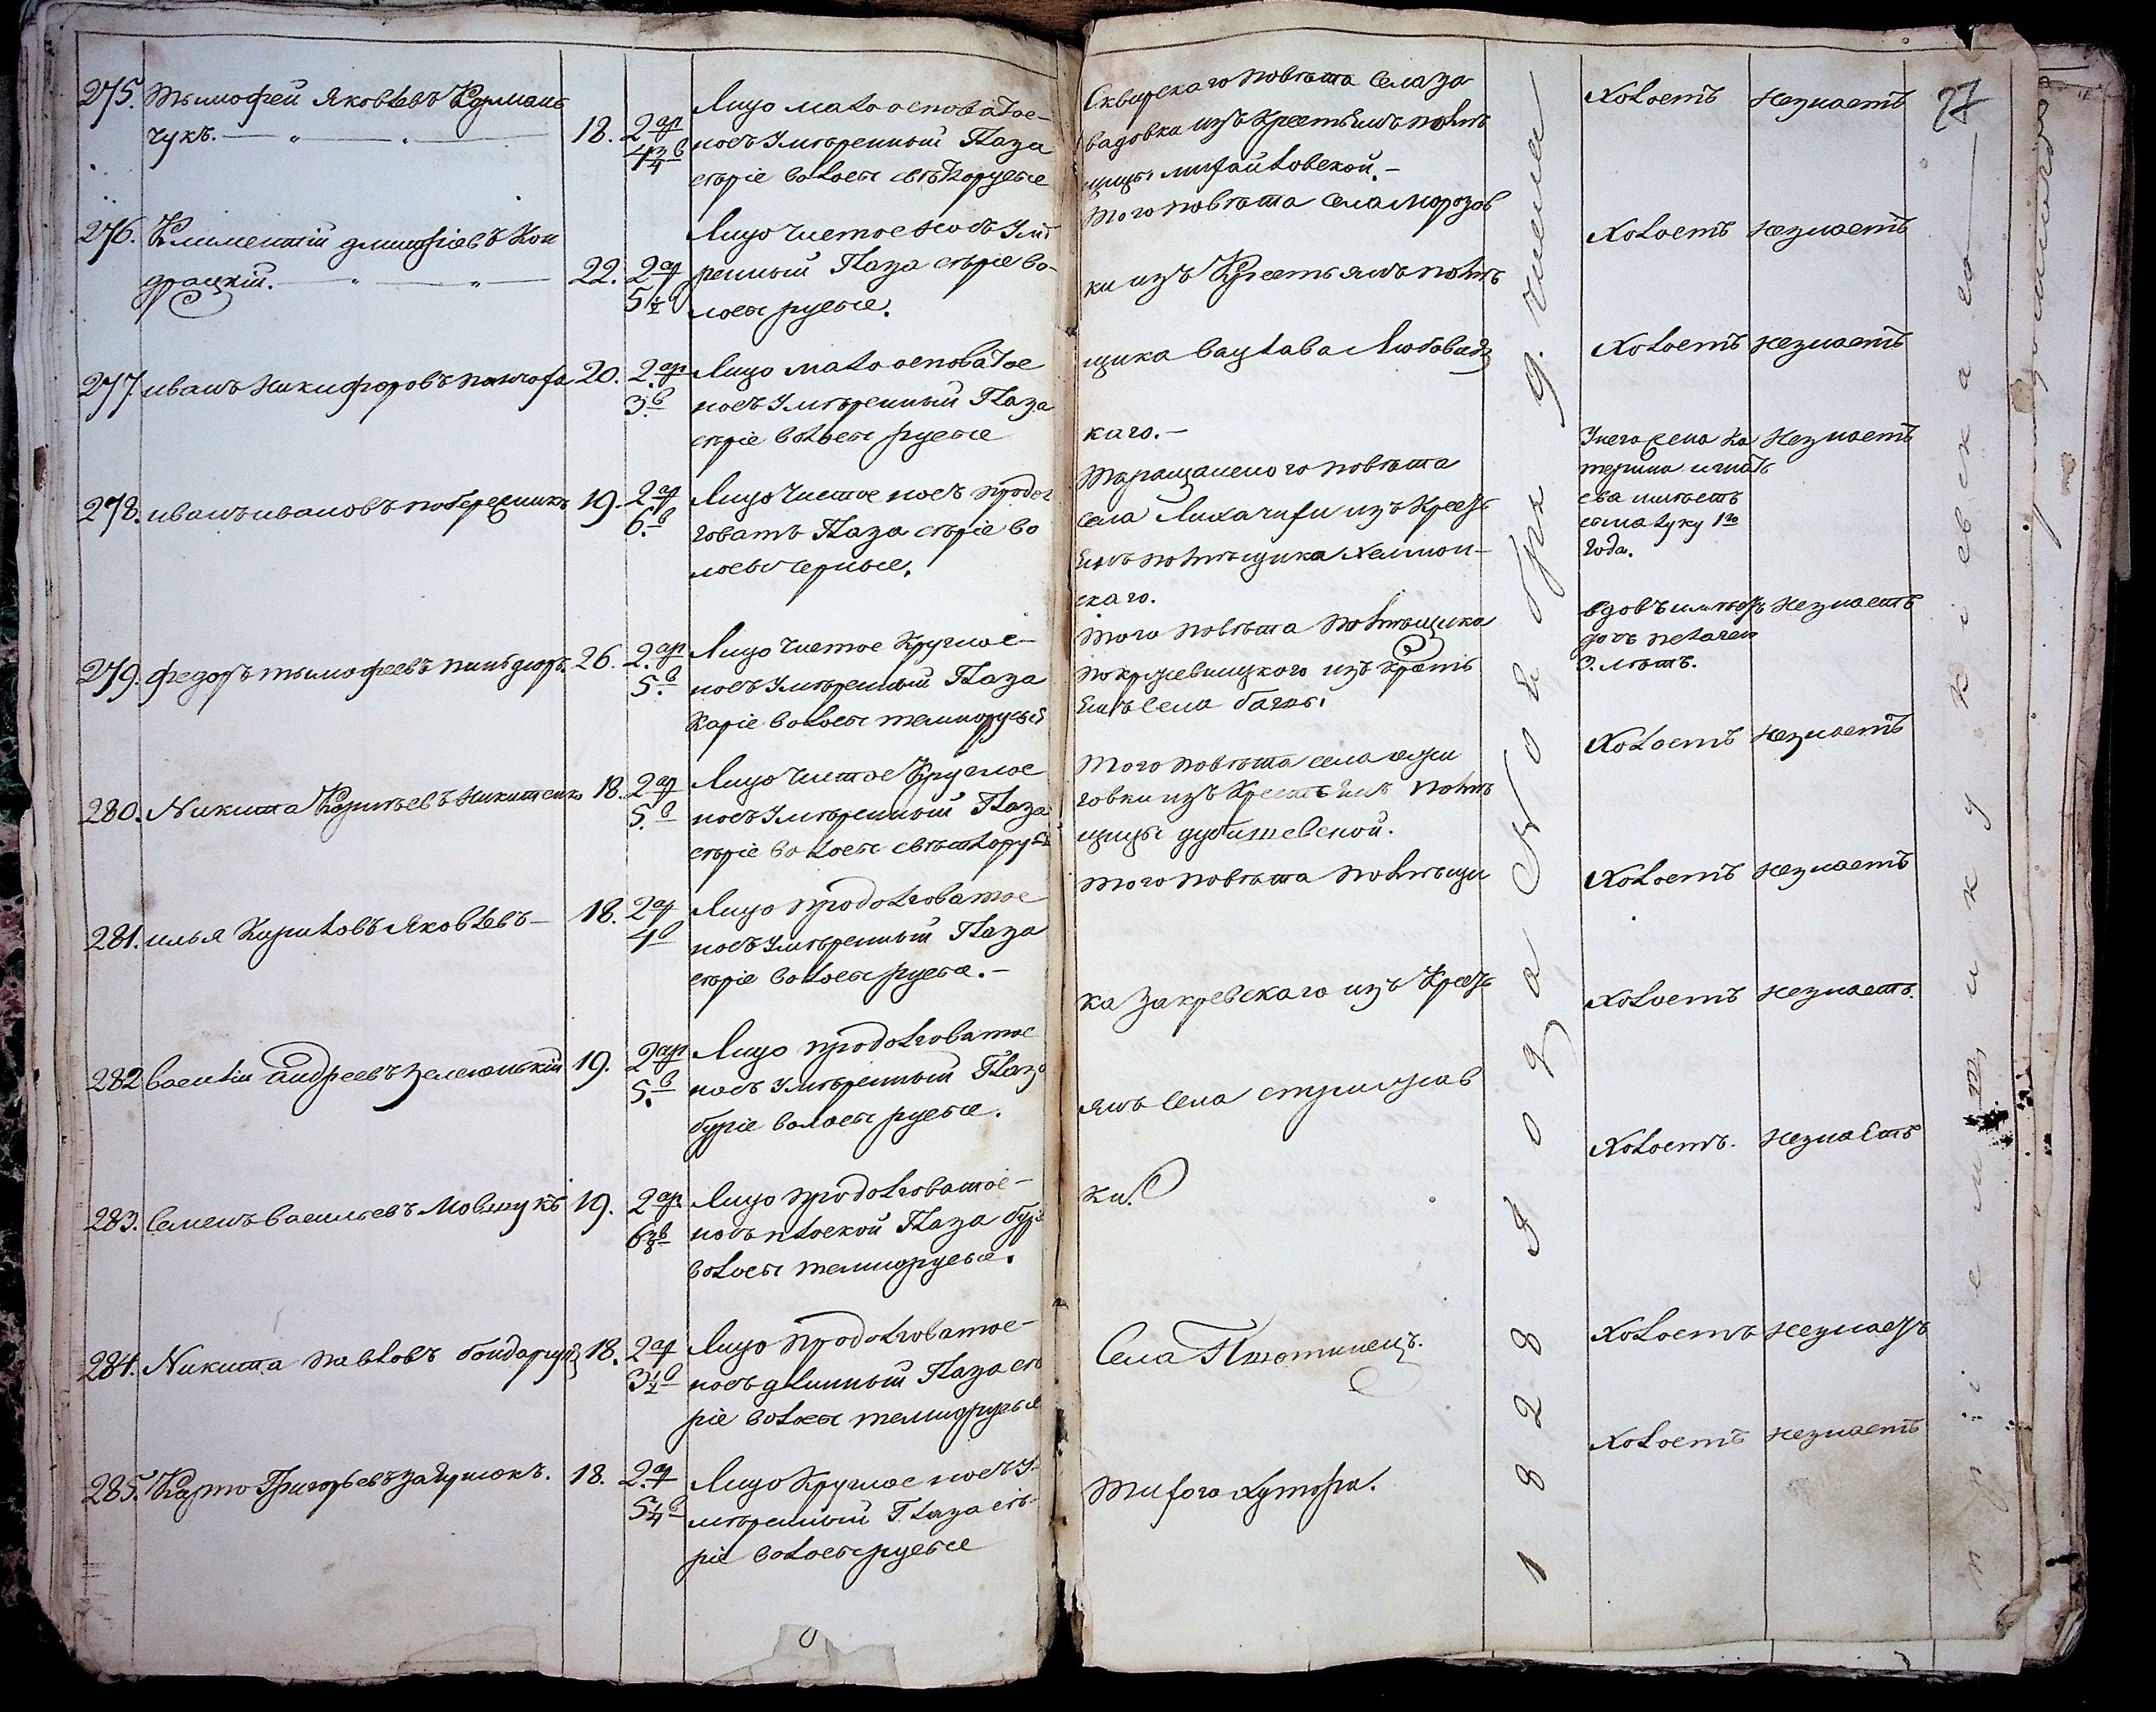 275. Тымофей Яковлевъ Кормань
чукъ. — 18. 2 ар 4 3/4 в
Лицо мало осповатое
носъ Умѣренный Глаза
сѣріе волосы свѣтлорусые
276. Климентій Дмитріевъ Кон
драцкій. — 22. 2 ар 5 1/2 в
Лицо чистое носъ Умѣ
ренный Глаза сѣріе во-
лосы русые.
277. иванъ Никифоровъ 20. 2. ар 3. в
Лицо мало осповатое
носъ Умѣренный Глаза
сѣріе волосы русые
278. иванъ ивановъ побережникъ 19. 2 ар 6. в
Лицо Чистое носъ продол
говатъ Глаза сѣріе во
лосы черные.
279. Федоръ тымофеевъ 26. 2. ар 5. в
Лицо чистое Круглое
носъ Умѣренный Глаза
Каріе волосы темнорусые
280. Никита Никитенко 18. 2 ар 5. в
Лицо чистое Круглое
носъ Умѣренный Глаза
сѣріе волосы свѣтлорусы
281. илья Кириловъ Яковлевъ — 18. 2 ар 4 в
Лицо продолговатое
носъ Умѣренный Глаза
сѣріе волосы русые. —
282 Василій андреевъ зеленюцкій 19. 2 ар 5. в
Лицо продолговатое
носъ Умѣренный Глаза
буріе волосы русые.
283. Семенъ Васильевъ 19. 2 ар. 6 3/8 в
Лицо продолговатое —
носъ плоской Глаза бурі
волосы темнорусые.
284. Никита павловъ бондарчукъ 18. 2 ар 3 1/2 в
Лицо продолговатое —
носъ длинный Глаза сѣ
ріе волосы темнорусые
285. Карпо Григорьевъ 18. 2. ар 5 1/4 в
Лицо Круглое носъ У-
мѣренный Глаза сѣ-
ріе волосы русые
Сквирскаго повѣта села за
вадовка изъ Крестьянъ помѣ
щицы михайловской. —
того повѣта села Морозов
ки изъ Крестьянъ помѣ
щика Вацлава Любовидз
каго. —
Таращанского повѣта
села Лихачихи изъ Крест
янъ помѣщика Хелмон-
скаго.
того повѣта помѣщика
изъ Крестъ
янъ села
того повѣта села
говки изъ Крестьянъ помѣ
щицы
того повѣта помѣщи
ка Закревскаго изъ Крест
янъ села стрижав
ки.
Села Плютинецъ.
Тихого Хутора.
1828 года Ноября д. числа
Холостъ Незнаетъ
Холостъ Незнаетъ
Холостъ незнаетъ
Унего жена Ка
терина игнать
ева имѣетъ
сына луку 1го
года.
Незнаетъ
вдовъ имѣетъ
дочь пелагею
3. лѣтъ.
Незнаетъ
Холостъ Незнаетъ
Холостъ незнаетъ
Холостъ незнаетъ.
Холостъ. незнаетъ
Холостъ незнаетъ
Холостъ незнаетъ
27